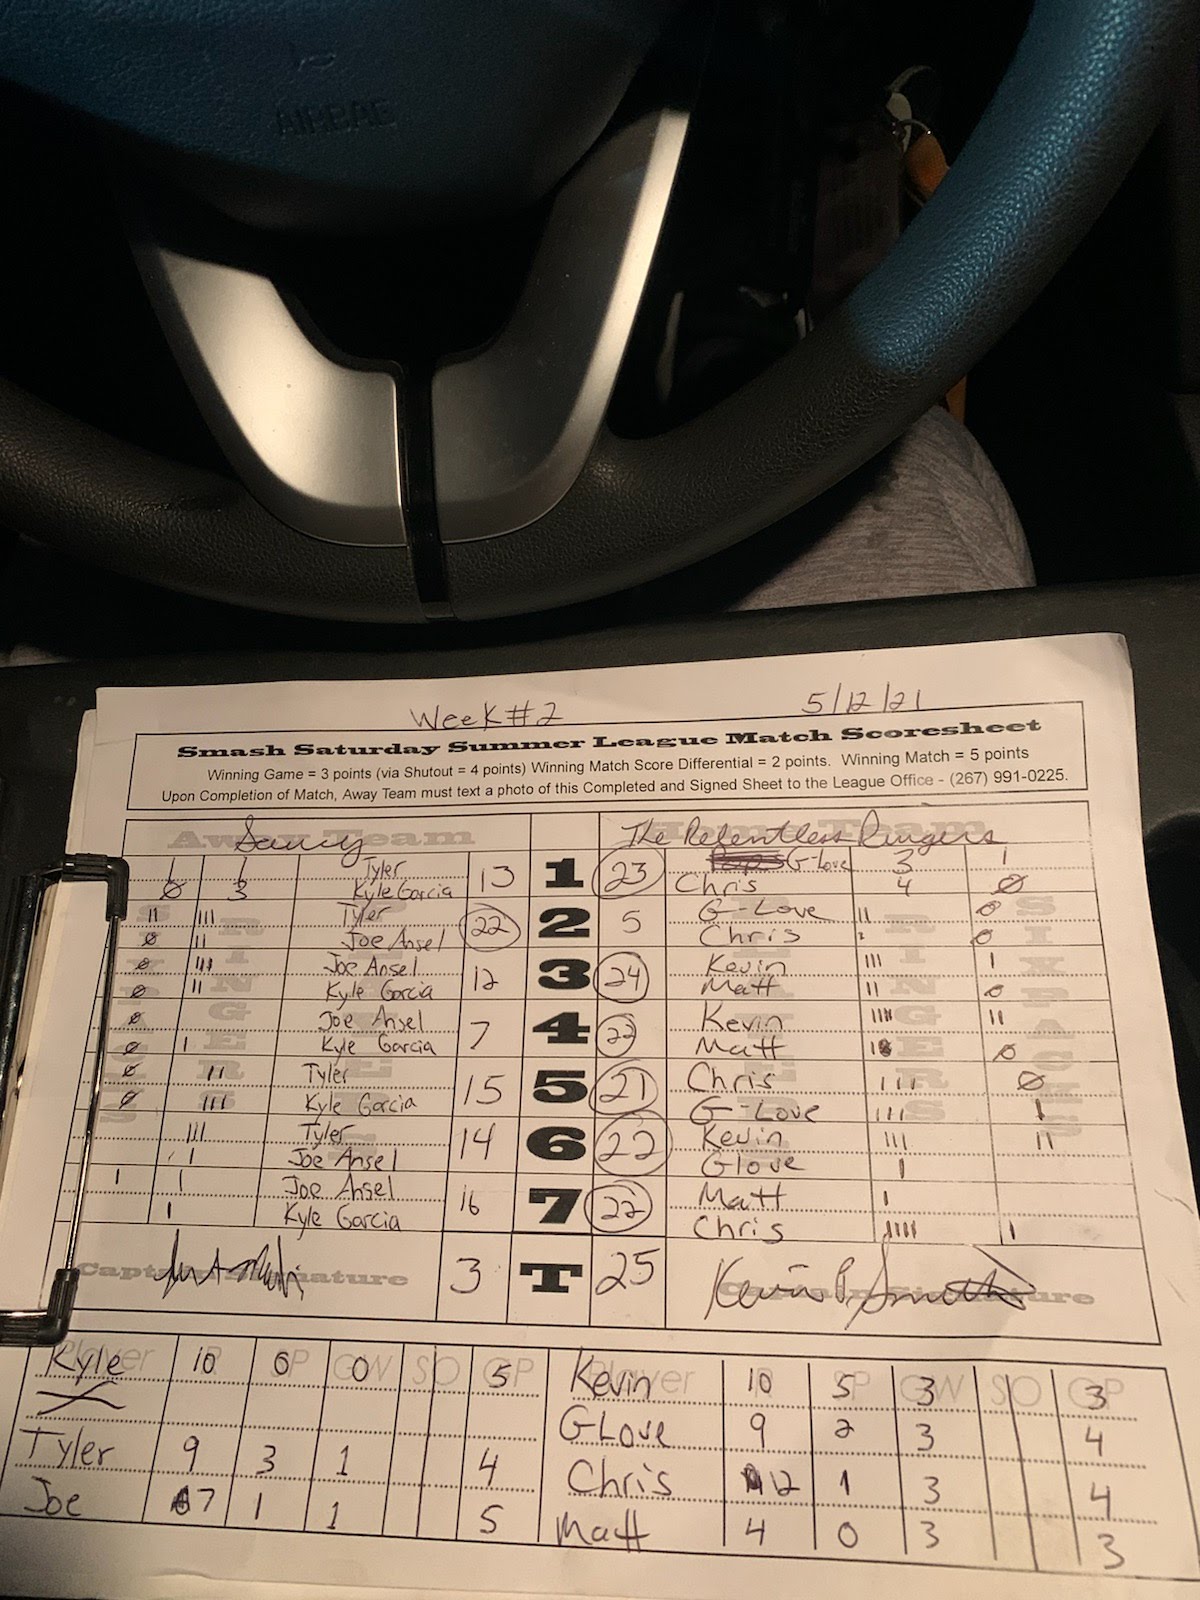 AIRBAG
Week #2 5/12/21
Smash Saturday Summer League Match Scoresheet
Winning Game = 3 points (via Shutout = 4 points) Winning Match Score Differential = 2 points. Winning Match = 5 points
Upon Completion of Match, Away Team must text a photo of this Completed and Signed Sheet to the League Office - (267) 991-0225.
Away Team Home Team
Saucy The Relentless Ringers
1 1 Tyler 13 1 23 G-Love 3 1
Ø 3 Kyle Garcia Chris 4 Ø
II III Tyler 22 2 5 G-Love II Ø
Ø II Joe Ansel Chris Ø
Ø III Joe Ansel 12 3 24 Kevin III I
Ø II Kyle Garcia Matt II Ø
Ø Joe Ansel 7 4 22 Kevin IIII II
Ø I Kyle Garcia Matt Ø
Ø II Tyler 15 5 21 Chris III Ø
Ø III Kyle Garcia G-Love III I
III Tyler 14 6 22 Kevin III II
I Joe Ansel Glove I
I I Joe Ansel 16 7 22 Matt I
I Kyle Garcia Chris IIIII I
Captain Signature 3 T 25 Kevin P. Smith Captain Signature
Player R SP GW SO GP Player R SP GW SO GP
Kyle 10 0 0 5 Kevin 10 5 3 3
GLove 9 2 3 4
Tyler 9 3 1 4 Chris 12 1 3 4
Joe 7 1 1 5 Matt 4 0 3 3